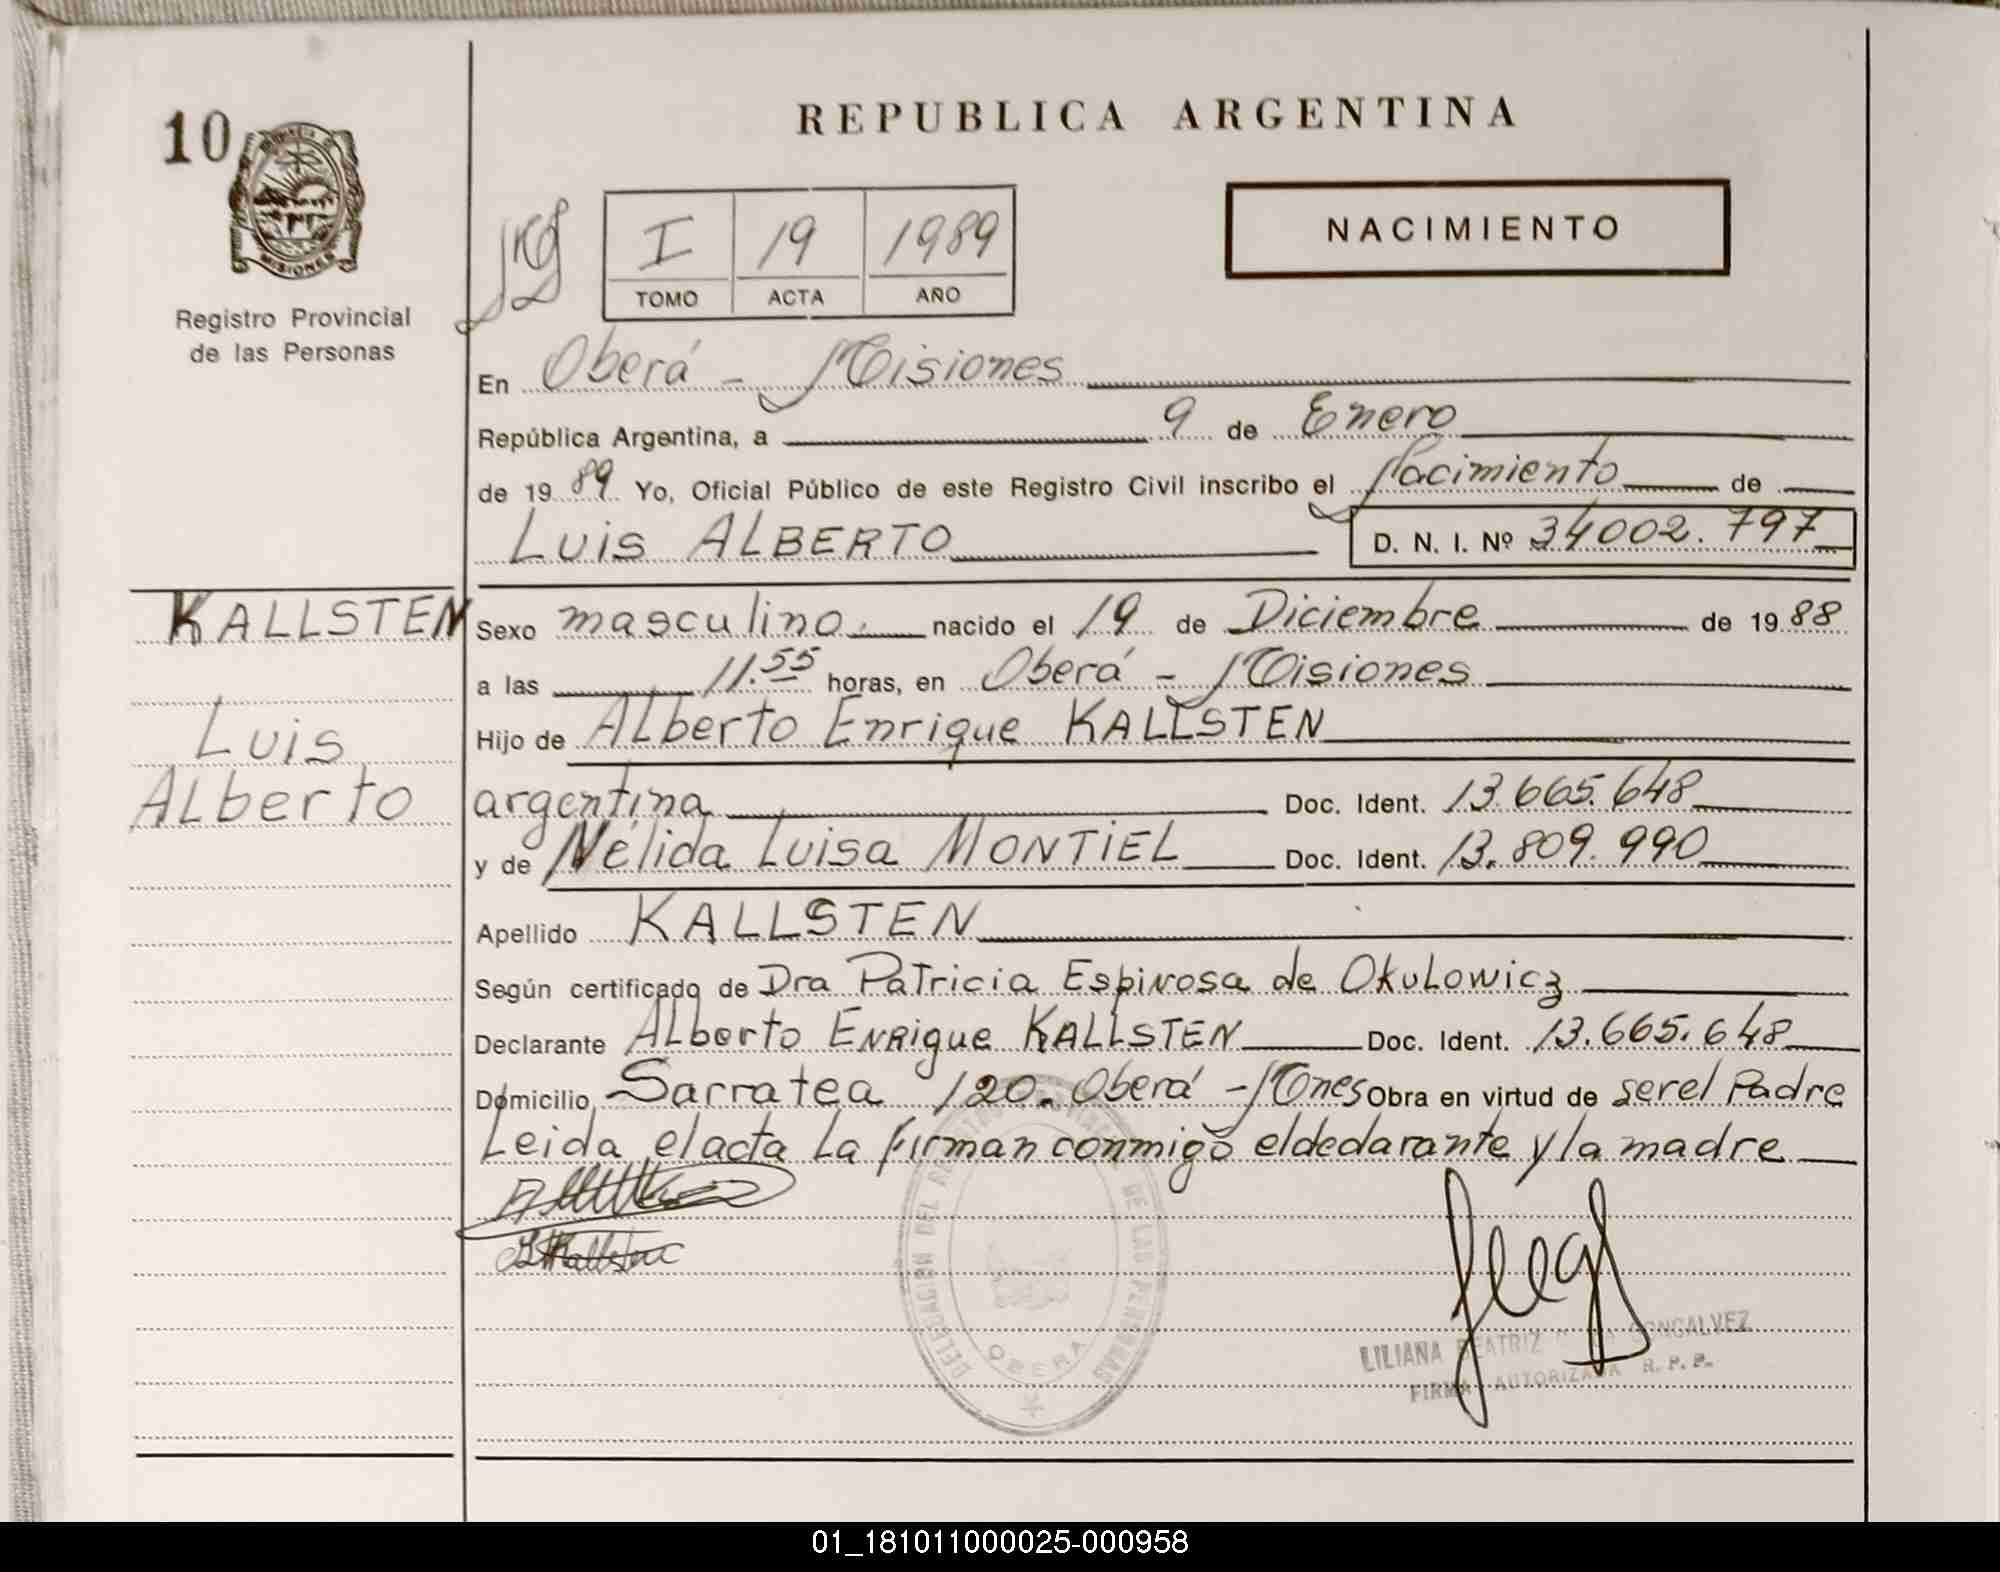 REPUBLICA ARGENTINA
10
MISIONES
Registro Provincial
de las Personas
I 19 1989
TOMO ACTA AÑO
NACIMIENTO
En Oberá - Misiones
República Argentina, a 9 de Enero
de 19 89 Yo, Oficial Público de este Registro Civil inscribo el Nacimiento de
Luis ALBERTO D. N. I. Nº 34002.797
KALLSTEN
Luis
Alberto
Sexo masculino. nacido el 19 de Diciembre de 19 88
a las 11.55 horas, en Oberá - Misiones
Hijo de Alberto Enrique KALLSTEN
argentina Doc. Ident. 13.665.648
y de Nélida Luisa MONTIEL Doc. Ident. 13.809.990
Apellido KALLSTEN
Según certificado de Dra Patricia Espinosa de Okulowicz
Declarante Alberto Enrique KALLSTEN Doc. Ident. 13.665.648
Domicilio Sarratea 120. Oberá - Mones Obra en virtud de ser el Padre
Leida el acta La firman conmigo el declarante y la madre
DELEGACION DEL REGISTRO DE LAS PERSONAS
OBERA
LILIANA BEATRIZ GONCALVEZ
FIRMA AUTORIZADA R. P. P.
01_181011000025-000958